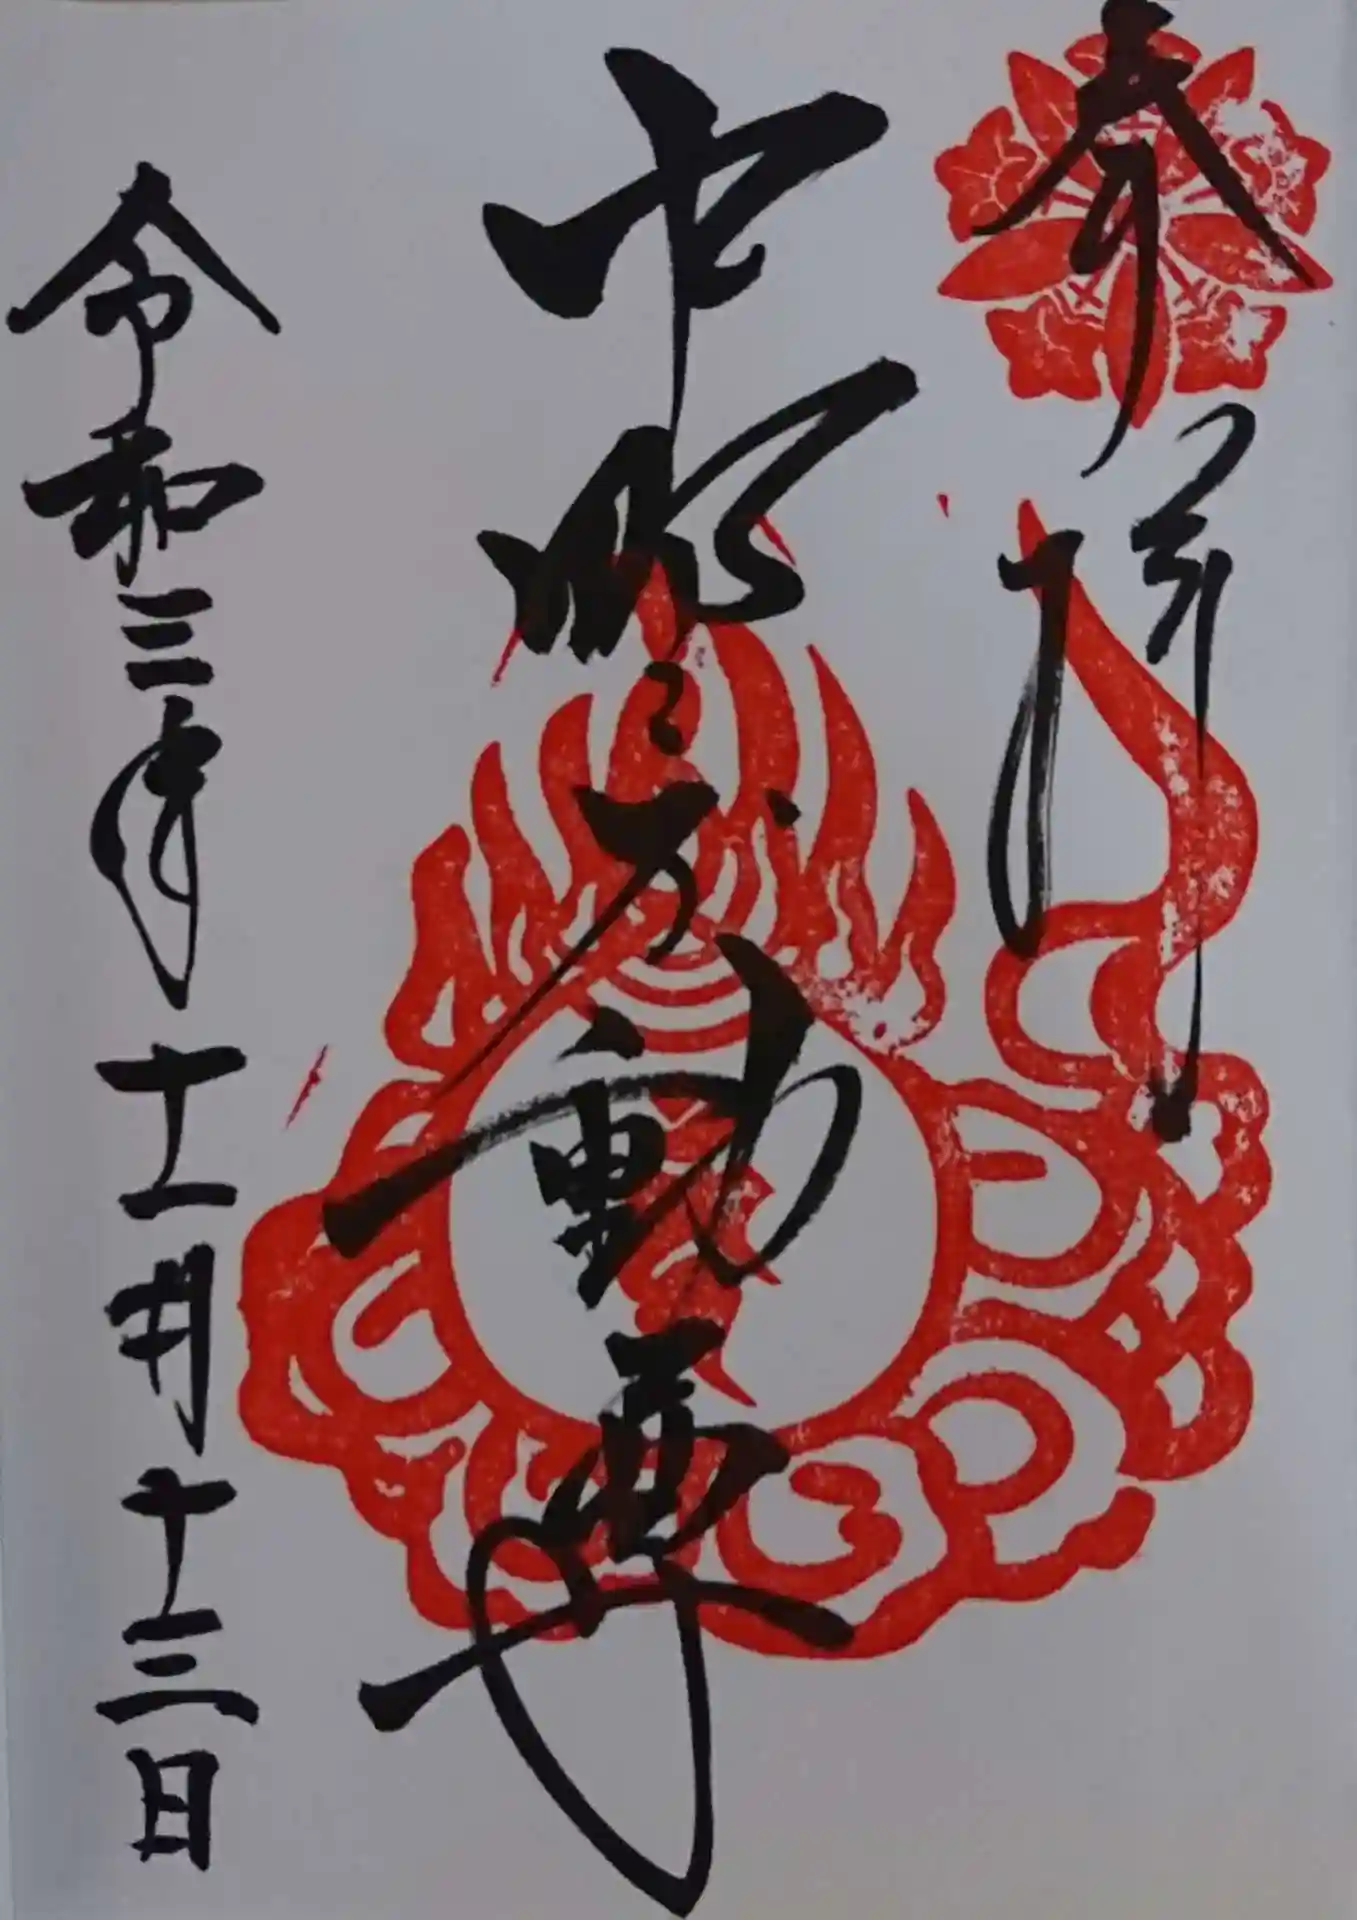 奉拝
不動尊
令和三年十一月十三日